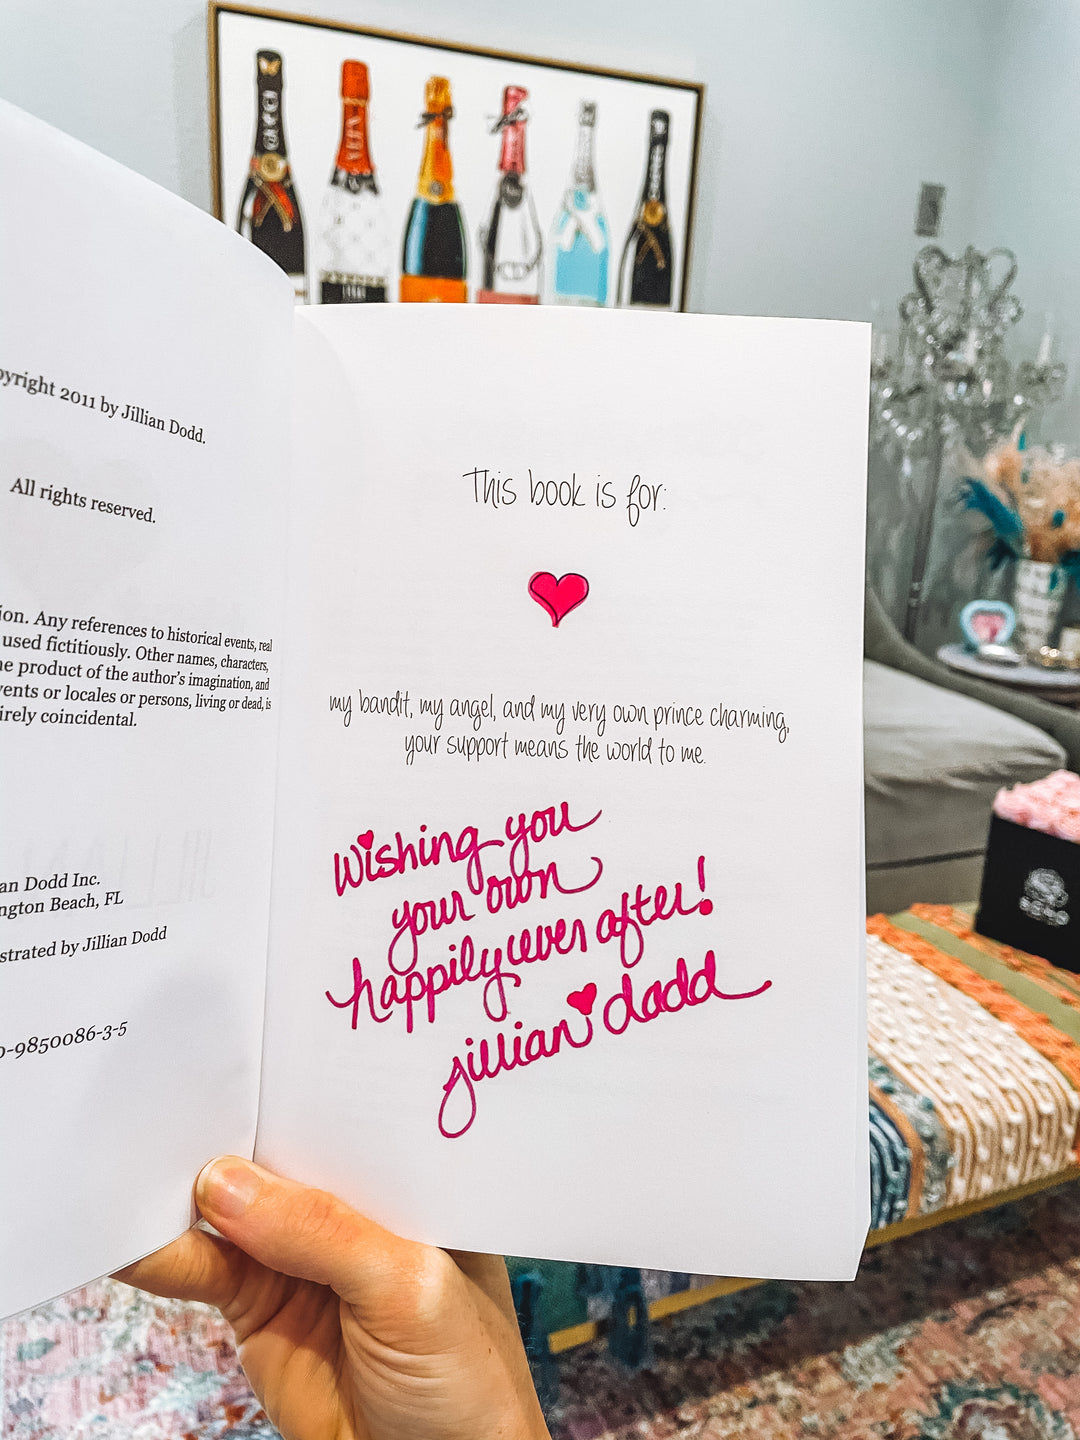 pyright 2011 by Jillian Dodd.
All rights reserved.
ion. Any references to historical events, real
used fictitiously. Other names, characters,
e product of the author's imagination, and
vents or locales or persons, living or dead, is
irely coincidental.
an Dodd Inc.
ngton Beach, FL
strated by Jillian Dodd
0-9850086-3-5
This book is for:
my bandit, my angel, and my very own prince charming,
your support means the world to me.
Wishing you
your own
happily ever after!
jillian dodd